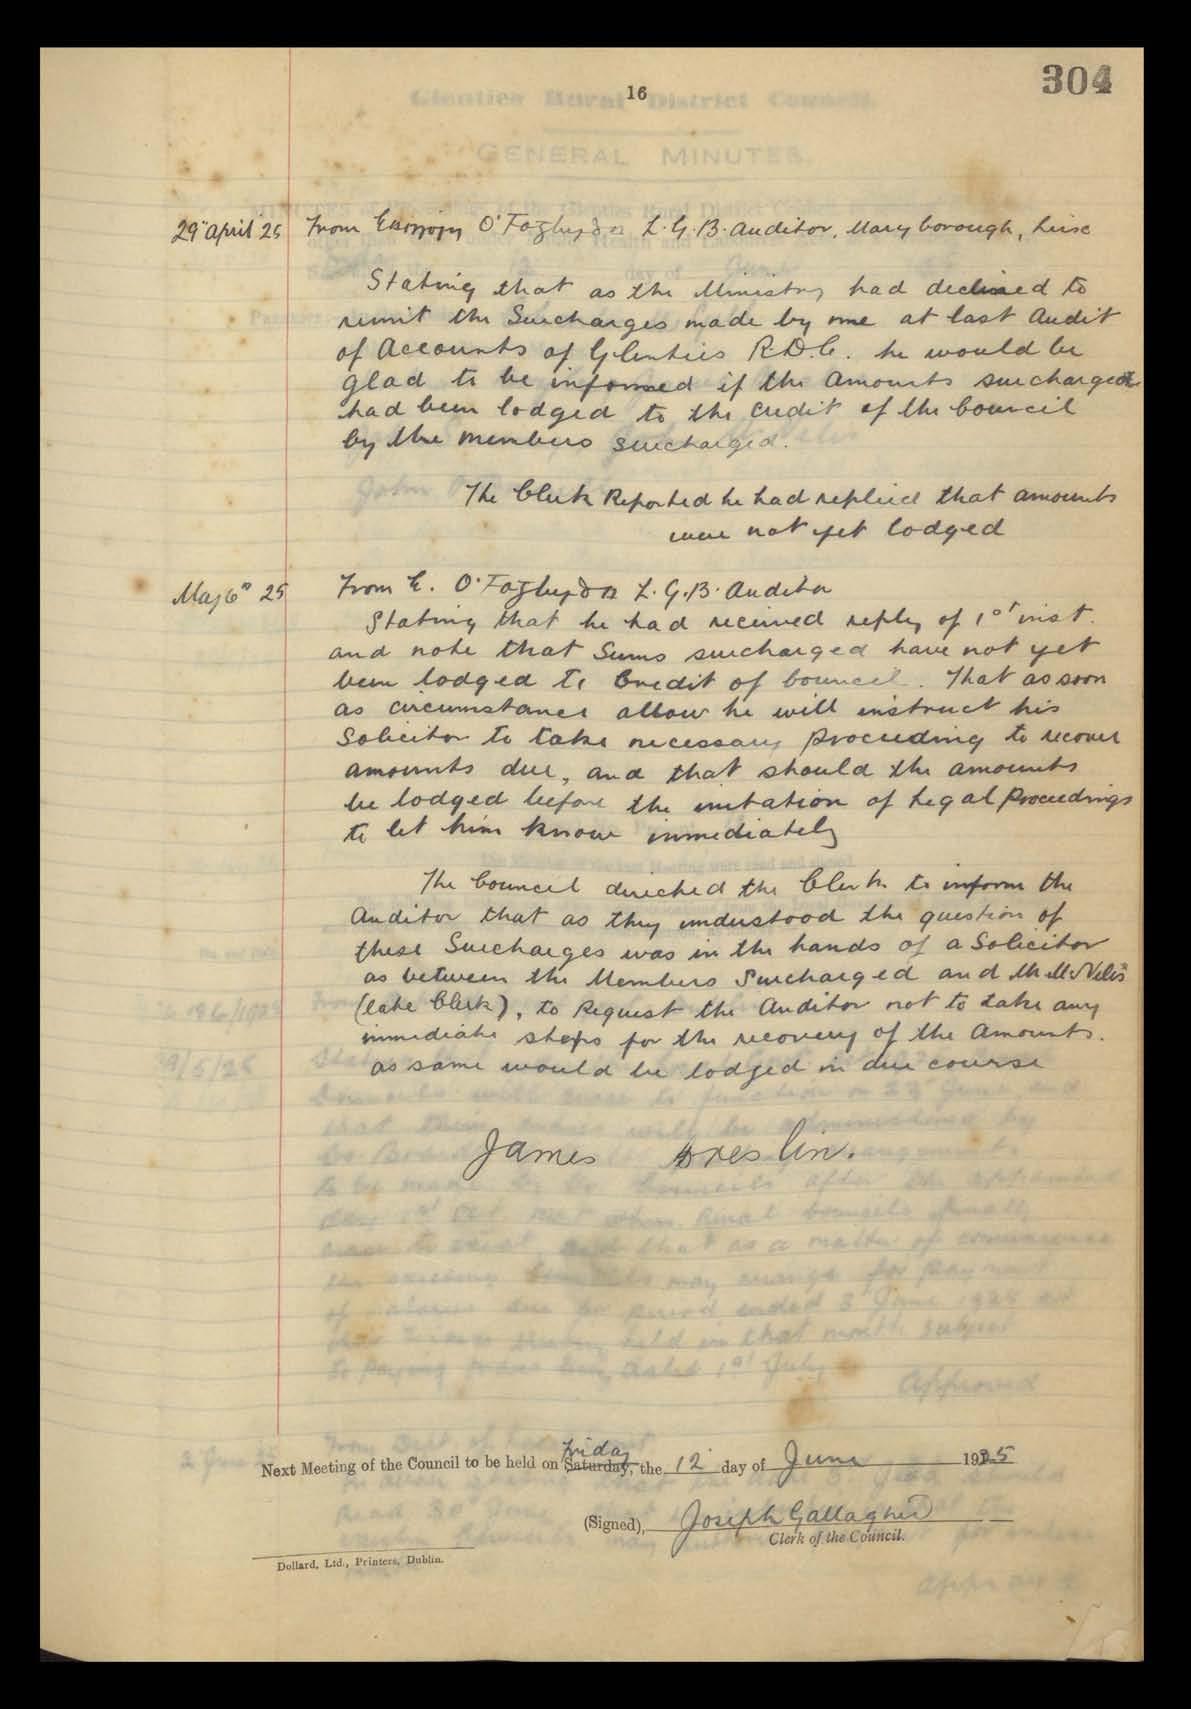 304
16
29th April 25 From O'Fógluḋa L.G.B. Auditor, Maryborough,
Stating that as the Ministry had declined to
remit the Surcharges made by me at last Audit
of Accounts of Glenties R.D.C. he would be
glad to be informed if the Amounts surcharged
had been lodged to the credit of the Council
by the members surcharged.
The Clerk Reported he had replied that amounts
were not yet lodged
May 6th 25 From E. O'Fógluḋa L.G.B. Auditor
Stating that he had received reply of 1st inst.
and note that Sums surcharged have not yet
been lodged to Credit of Council. That as soon
as circumstances allow he will instruct his
Solicitor to take necessary proceeding to recover
amounts due, and that should the amounts
be lodged before the initation of Legal Proceedings
to let him know immediately
The Council directed the Clerk to inform the
Auditor that as they understood the question of
these Surcharges was in the hands of a Solicitor
as between the Members Surcharged and Mr McNelis
(late Clerk), to Request the Auditor not to take any
immediate steps for the recovery of the Amounts.
as same would be lodged in due course
James Breslin.
Friday
Next Meeting of the Council to be held on Saturday, the 12 day of June 1925
(Signed), Joseph Gallagher
Clerk of the Council.
Dollard, Ltd., Printers, Dublin.